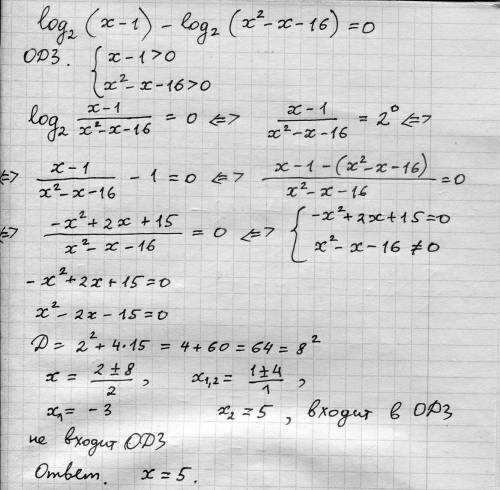 log₂ (x-1) - log₂ (x²-x-16) = 0
ОДЗ. { x-1>0
x²-x-16>0
log₂ (x-1)/(x²-x-16) = 0 <=> (x-1)/(x²-x-16) = 2⁰ <=>
<=> (x-1)/(x²-x-16) - 1 = 0 <=> (x-1-(x²-x-16))/(x²-x-16) = 0
<=> (-x²+2x+15)/(x²-x-16) = 0 <=> { -x²+2x+15=0
x²-x-16 ≠ 0
-x²+2x+15=0
x²-2x-15=0
Д = 2²+4·15 = 4+60=64 = 8²
x = (2±8)/2, x₁,₂ = (1±4)/1,
x₁= -3 x₂ = 5, входит в ОДЗ
не входит ОДЗ
Ответ. x = 5.